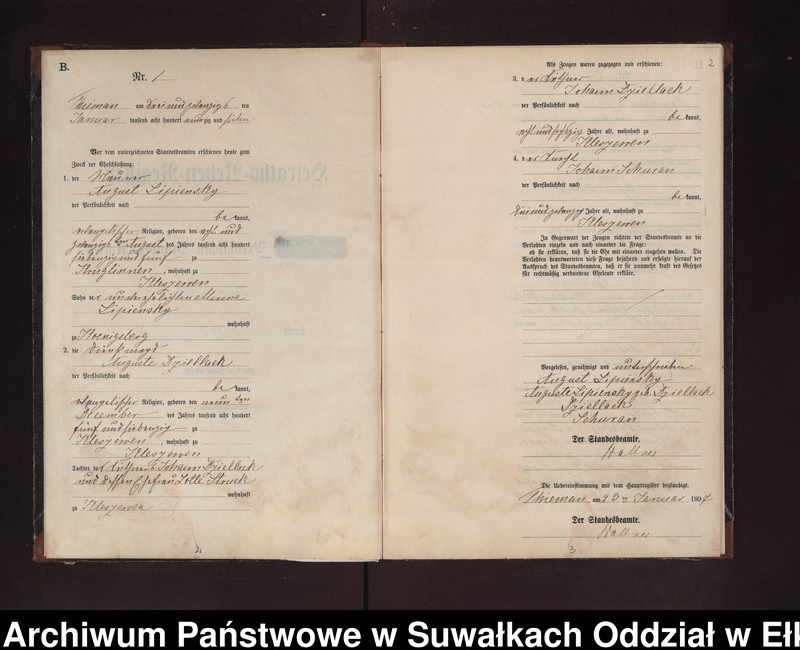 B.
Nr. 1
Thieman am dreiundzwanzigs ten
Januar tausend acht hundert neunzig und sieben
Vor dem unterzeichneten Standesbeamten erschienen heute zum
Zweck der Eheschließung:
1. der Maurer
August Lipiensky
der Persönlichkeit nach
be kannt,
evangelischer Religion, geboren den acht und
zwanzigs ten August des Jahres tausend acht hundert
siebenzig und fünf zu
Kruglinnen, wohnhaft zu
Kleszewen
Sohn der unverehelichten Minna
Lipiensky
wohnhaft
zu Koenigsberg
2. die Dienstmagd
Auguste Dziellack
der Persönlichkeit nach
be kannt,
evangelischer Religion, geboren den neun ten
Dezember des Jahres tausend acht hundert
fünf und siebenzig zu
Kleszewen, wohnhaft zu
Kleszewen
Tochter des Käthners Johann Dziellack
und dessen Ehefrau Lotte Struck
wohnhaft
zu Kleszewen
2
Als Zeugen waren zugezogen und erschienen:
3. der Käthner
Johann Dziellack
der Persönlichkeit nach
be kannt,
Jahre alt, wohnhaft zu
Kleszewen
4. der Knecht
Johann Schuran
der Persönlichkeit nach
be kannt,
dreiundzwanzig Jahre alt, wohnhaft zu
Kleszewen
In Gegenwart der Zeugen richtete der Standesbeamte an die
Verlobten einzeln und nach einander die Frage:
ob sie erklären, daß sie die Ehe mit einander eingehen wollen. Die
Verlobten beantworteten diese Frage bejahend und erfolgte hierauf der
Ausspruch des Standesbeamten, daß er sie nunmehr kraft des Gesetzes
für rechtmäßig verbundene Eheleute erkläre.
Vorgelesen, genehmigt und unterschrieben
August Lipiensky
Auguste Lipiensky geb. Dziellack
Dziellack
Schuran
Der Standesbeamte.
Die Uebereinstimmung mit dem Hauptregister beglaubigt.
Thieman am 23 ten Januar 1897
Der Standesbeamte.
3
Archiwum Państwowe w Suwałkach Oddział w Ełk